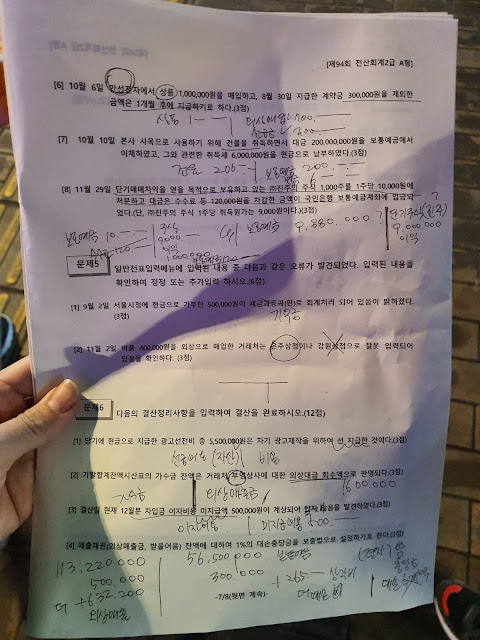 [제94회 전산회계2급 A형]
[6] 10월 6일 만선전자에서 상품 1,000,000원을 매입하고, 8월 30일 지급한 계약금 300,000원을 제외한
금액은 1개월 후에 지급하기로 하다.(3점)
상품 1 외상매입금 700.
선급금 300
[7] 10월 10일 본사 사옥으로 사용하기 위해 건물을 취득하면서 대금 200,000,000원을 보통예금에서
이체하였고, 그와 관련한 취득세 6,000,000원을 현금으로 납부하였다.(3점)
건물 206 보통예금 200
6
[8] 11월 29일 단기매매차익을 얻을 목적으로 보유하고 있는 ㈜진주의 주식 1,000주를 1주당 10,000원에
처분하고 대금은 수수료 등 120,000원을 차감한 금액이 국민은행 보통예금계좌에 입금되
었다.(단, ㈜진주의 주식 1주당 취득원가는 9,000원이다.)(3점)
보통예금 10 주식 9000 보통예금 9.880.000 9.000.000
120 이익
문제5 일반전표입력메뉴에 입력된 내용 중 다음과 같은 오류가 발견되었다. 입력된 내용을
확인하여 정정 또는 추가입력 하시오.(6점)
[1] 9월 2일 서울시청에 현금으로 기부한 500,000원이 세금과공과(판)로 회계처리 되어 있음이 밝혀졌다.
(3점)
기부금
[2] 11월 2일 비품 400,000원을 외상으로 매입한 거래처는 온주상점이나 강원상점으로 잘못 입력되어
있음을 확인하다. (3점)
문제6 다음의 결산정리사항을 입력하여 결산을 완료하시오.(12점)
[1] 당기에 현금으로 지급한 광고선전비 중 5,500,000원은 차기 광고제작을 위하여 선 지급한 것이다.(3점)
선급비용 (자산) 비용
[2] 기말합계잔액시산표의 가수금 잔액은 거래처 부영상사에 대한 외상대금 회수액으로 판명되다.(3점)
가수금 외상매출금 1600.000
[3] 결산일 현재 12월분 차입금 이자비용 미지급액 500,000원이 계상되어 있지 않음을 발견하였다.(3점)
이자비용 미지급비용 500.
[4] 매출채권(외상매출금, 받을어음) 잔액에 대하여 1%의 대손충당금을 보충법으로 설정하기로 한다.(3점)
113.220.000 56,500.000 받을어음
500.000 300.000
+632.200 +265
외상매출
-7/8(뒷면 계속)-